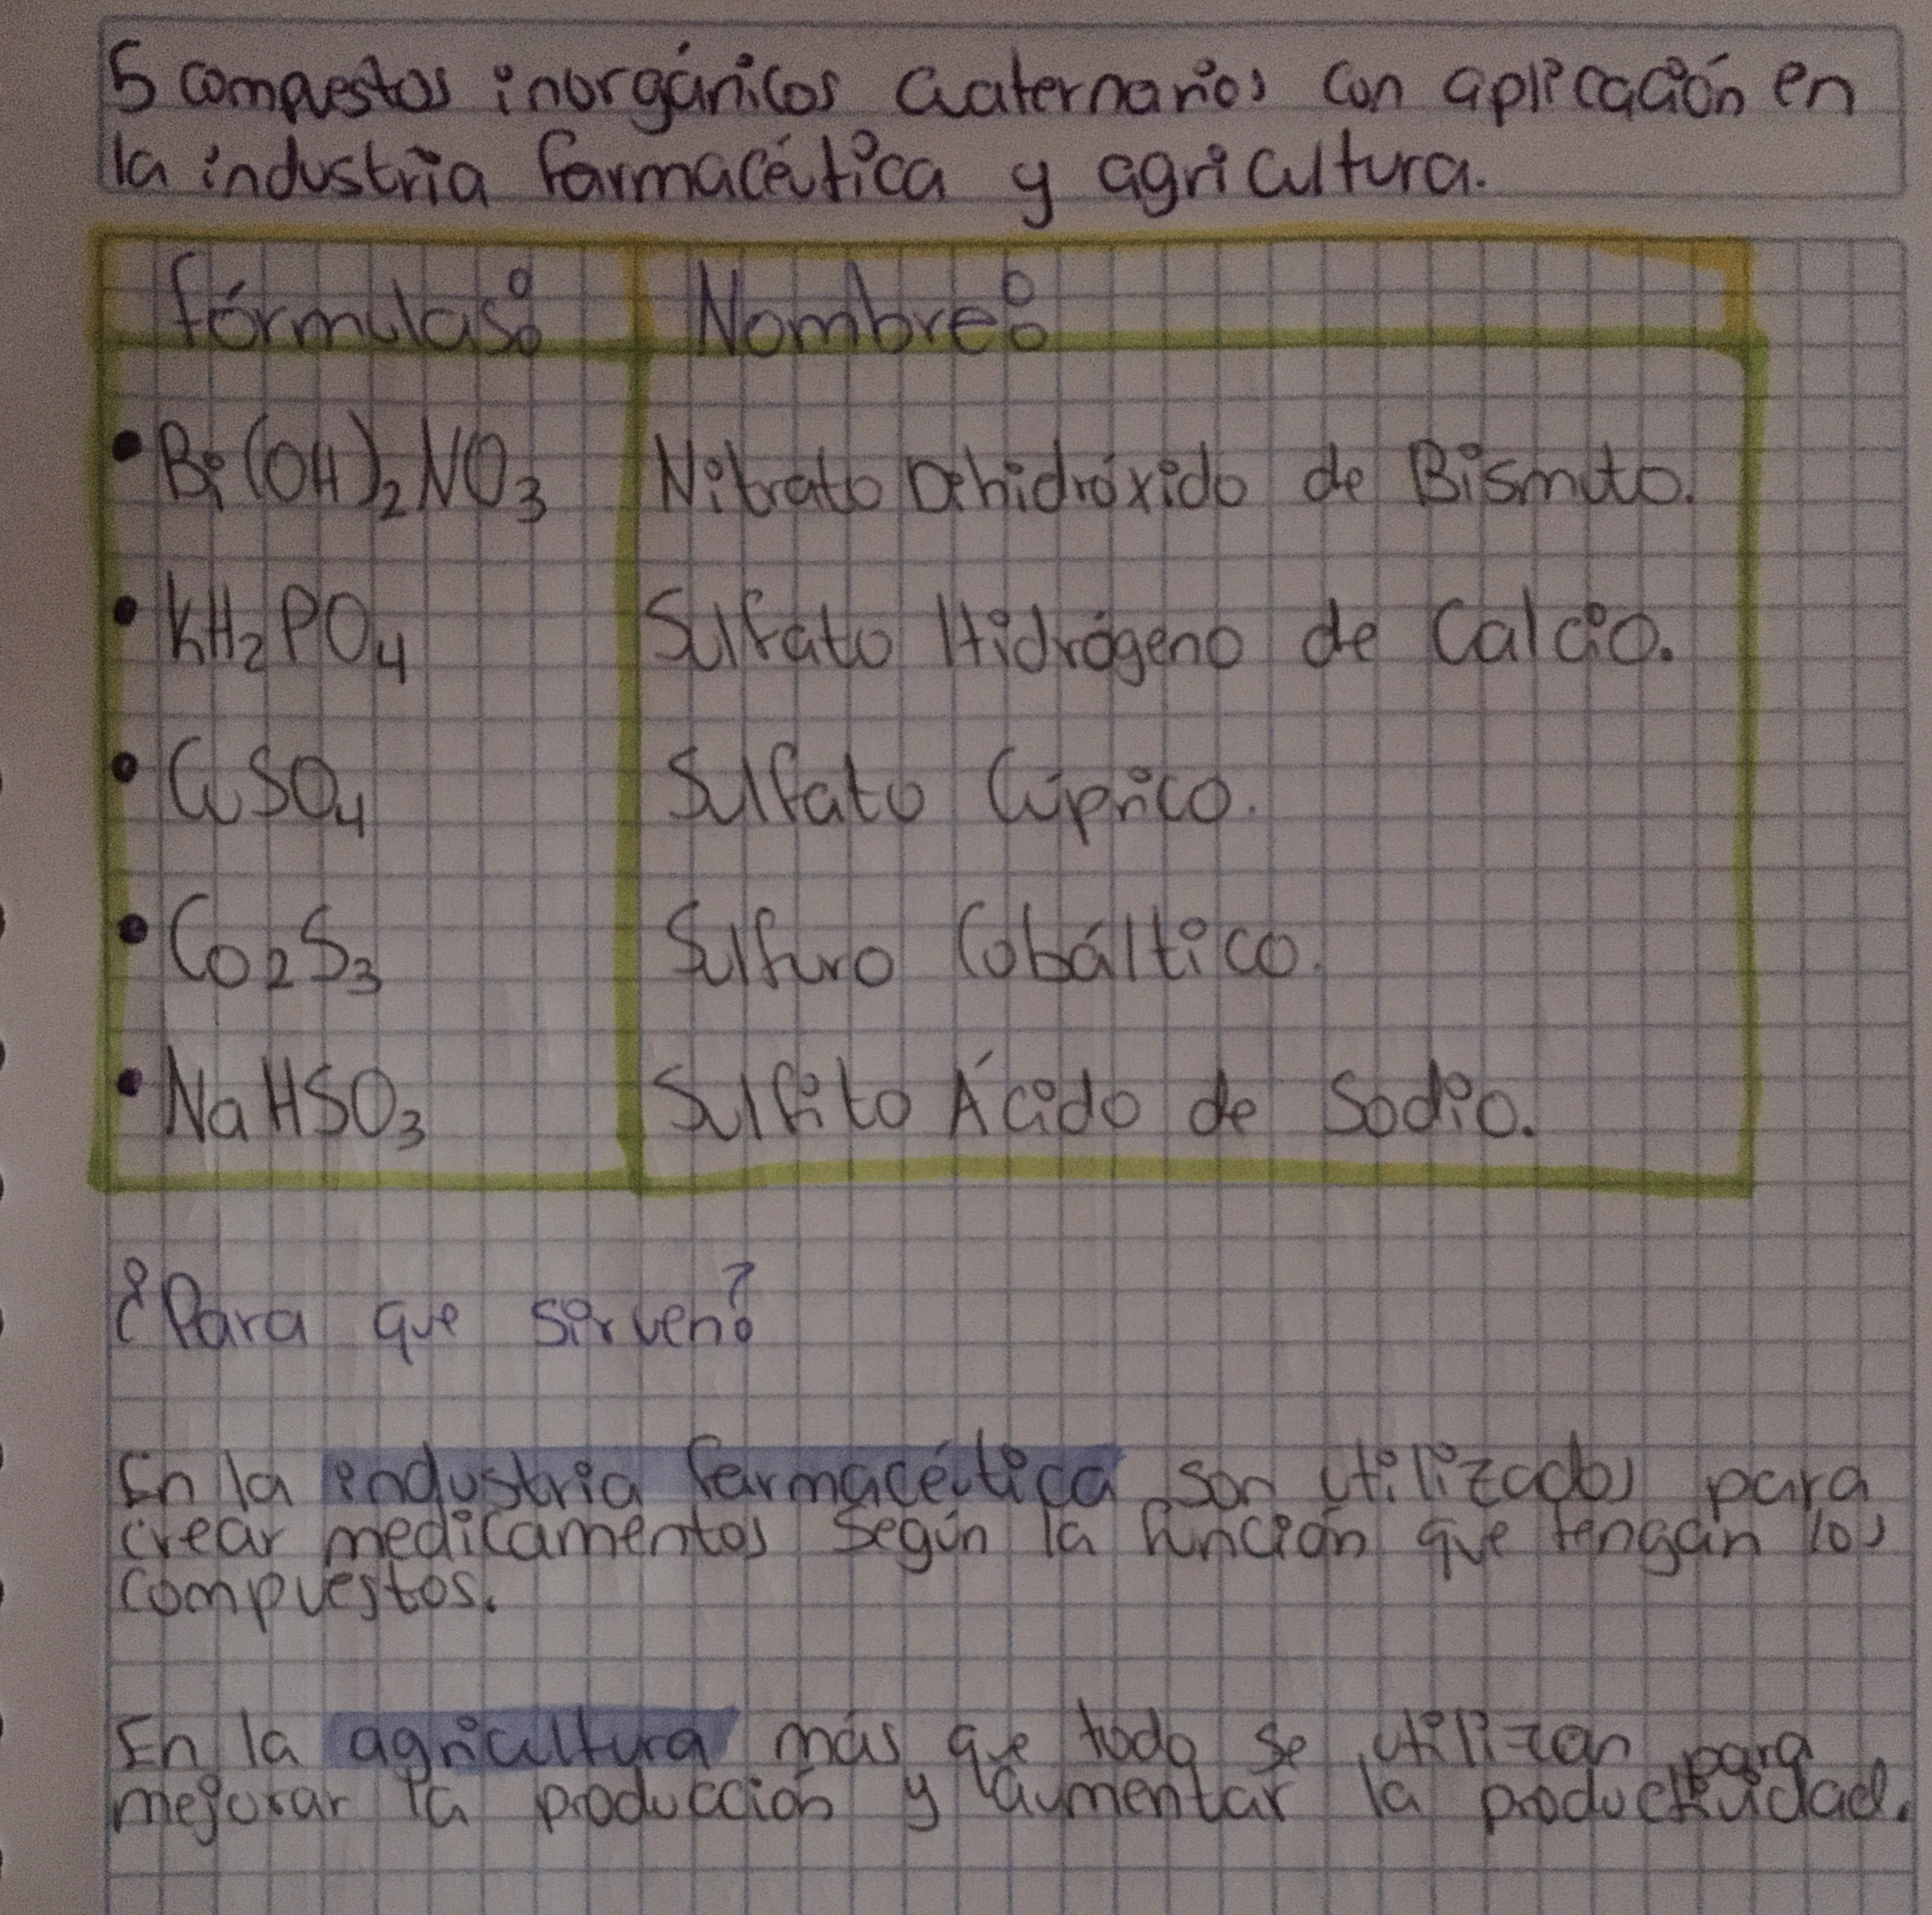 5 compuestos inorgánicos cuaternarios con aplicación en
la industria farmacéutica y agricultura.
fórmulas: Nombre:
• Bi(OH)₂NO₃ Nitrato Dihidróxido de Bismuto.
• KH₂PO₄ Sulfato Hidrógeno de Calcio.
• CuSO₄ Sulfato Cúprico.
• Co₂S₃ Sulfuro Cobáltico.
• NaHSO₃ Sulfito Ácido de Sodio.
¿Para que sirven?
En la industria farmacéutica son utilizados para
crear medicamentos según la función que tengan los
compuestos.
En la agricultura más que todo se utilizan para
mejorar la producción y aumentar la productividad.